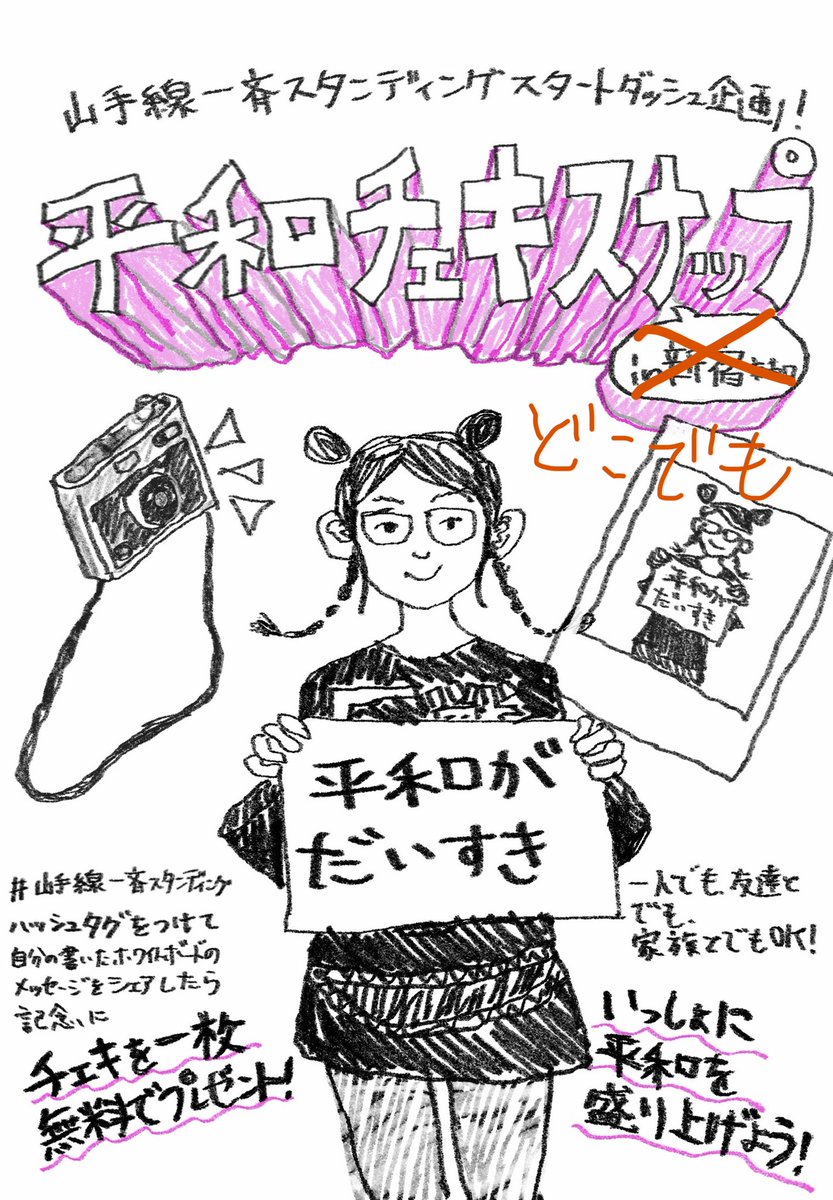 山手線一斉スタンディングスタートダッシュ企画!
平和チェキスナップ
in新宿
どこでも
平和が
だいすき
平和が
だいすき
#山手線一斉スタンディング
ハッシュタグをつけて
自分の書いたホワイトボードの
メッセージをシェアしたら
記念に
チェキを一枚
無料でプレゼント!
一人でも、友達と
でも、
家族とでもOK!
いっしょに
平和を
盛り上げよう!